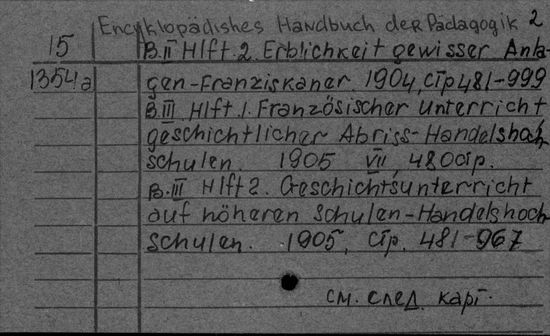 Encyklopädishes Handbuch der Pädagogik 2
15 B.II Hlft. 2. Erblichkeit gewisser Anla-
1354a gen-Franziskaner. 1904, стр 481-999
B.III. Hlft. 1. Französischer Unterricht
geschichtlicher Abriss-Handelshoch
schulen. 1905 VII, 480 стр.
B.III Hlft 2. Geschichtsunterricht
auf höheren Schulen-Handelshoch
schulen. 1905, стр. 481-967
см. след. карт.